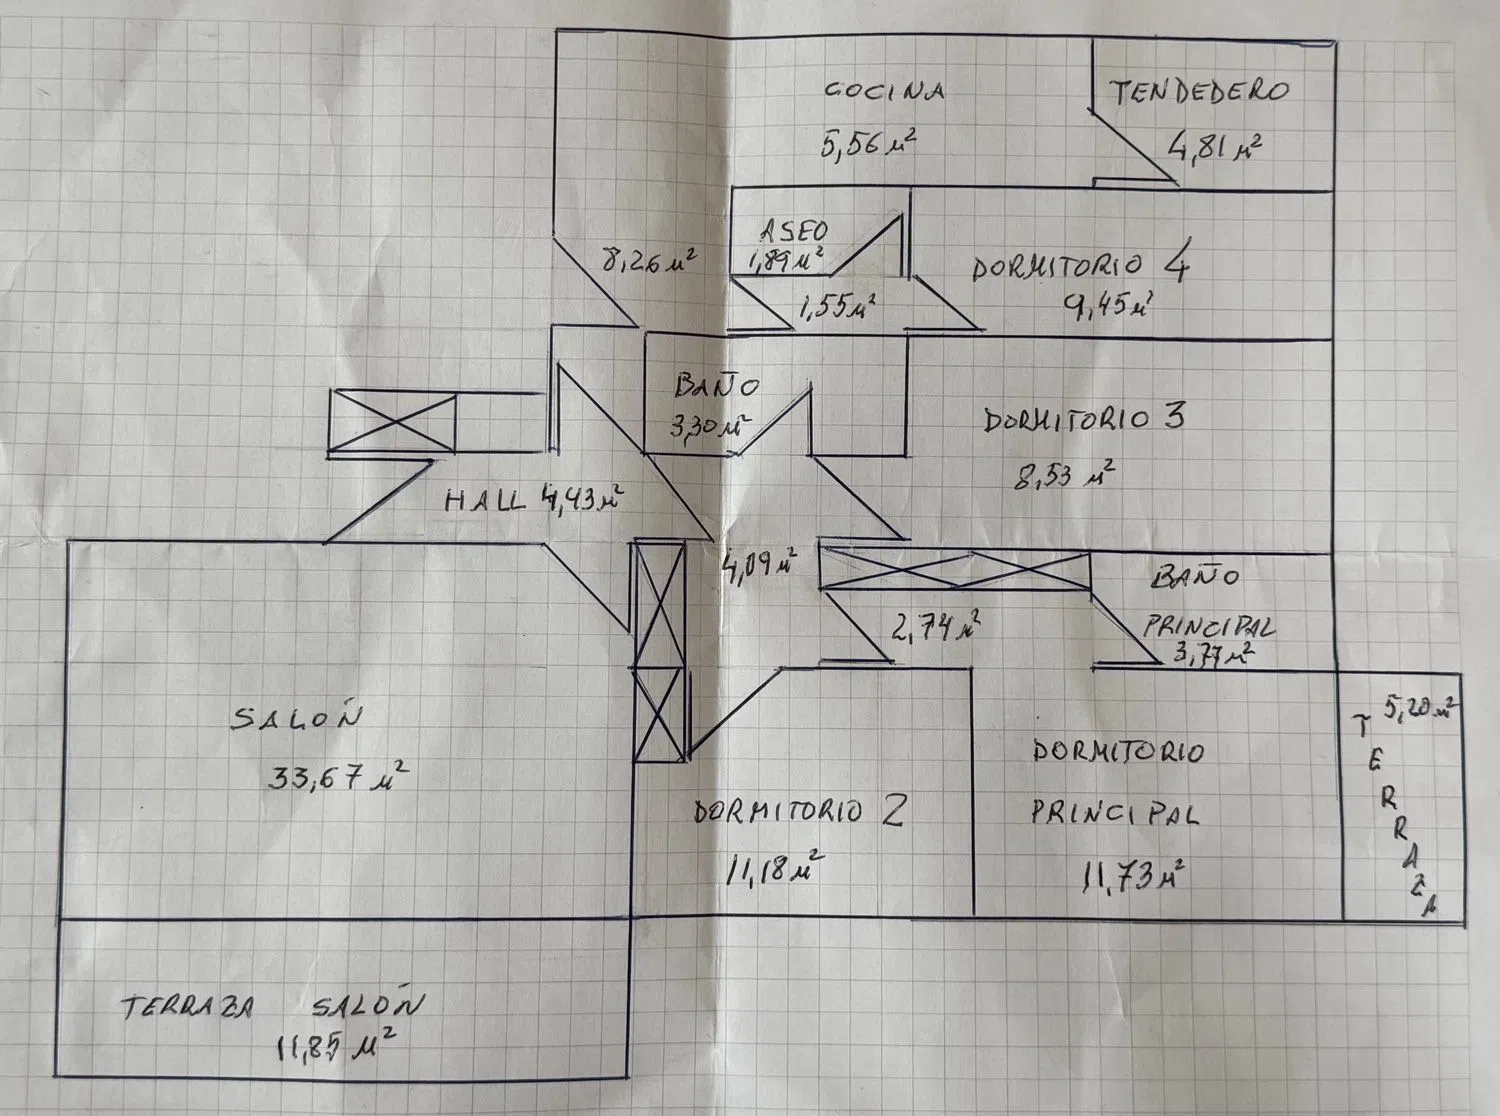 COCINA
5,56 m²
TENDEDERO
4,81 m²
8,26 m²
ASEO
1,89 m²
1,55 m²
DORMITORIO 4
9,45 m²
BAÑO
3,30 m²
DORMITORIO 3
8,53 m²
HALL 4,43 m²
4,09 m²
2,74 m²
BAÑO
PRINCIPAL
3,77 m²
SALÓN
33,67 m²
DORMITORIO 2
11,18 m²
DORMITORIO
PRINCIPAL
11,73 m²
5,20 m²
TERRAZA
TERRAZA SALÓN
11,85 m²